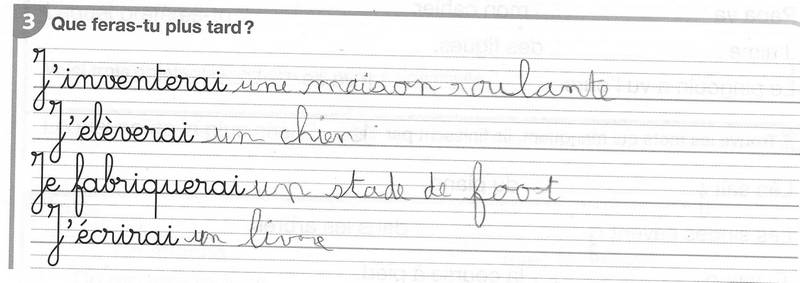 3 Que feras-tu plus tard ?
J'inventerai une maison roulante
J'élèverai un chien
Je fabriquerai un stade de foot
J'écrirai un livre